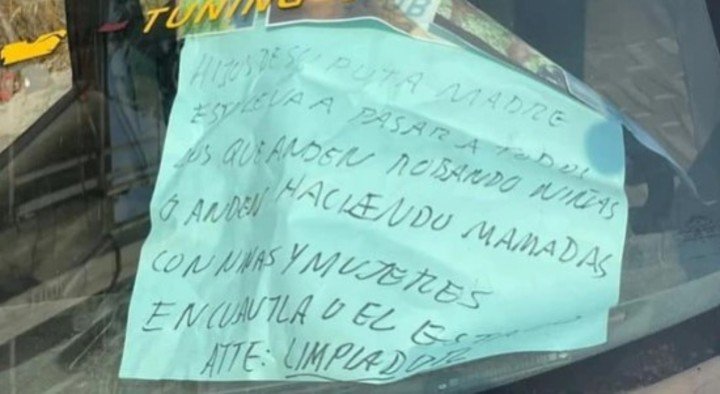 TUNING
HIJOS DE SU PUTA MADRE
ESTO LE VA A PASAR A TODOS
LOS QUE ANDEN ROBANDO NIÑAS
O ANDEN HACIENDO MAMADAS
CON NIÑAS Y MUJERES
EN CUAUTLA O EL
ATTE: LIMPIADOR